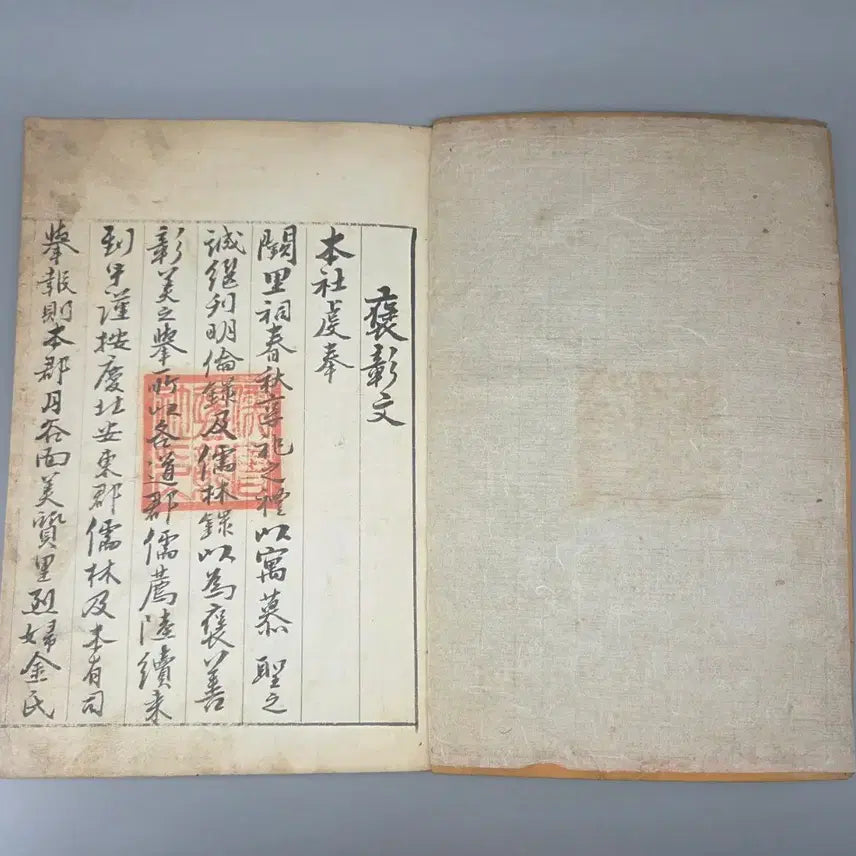 褒彰文
本社虔奉
闕里祠春秋享祀之禮以寓慕 聖之
誠繼刊明倫錄及儒林錄以為褒善
彰美之擧所以各道郡儒薦陸續来
到早謹按慶北安東郡儒林及本有司
擧報則本郡月谷面美質里烈婦金氏